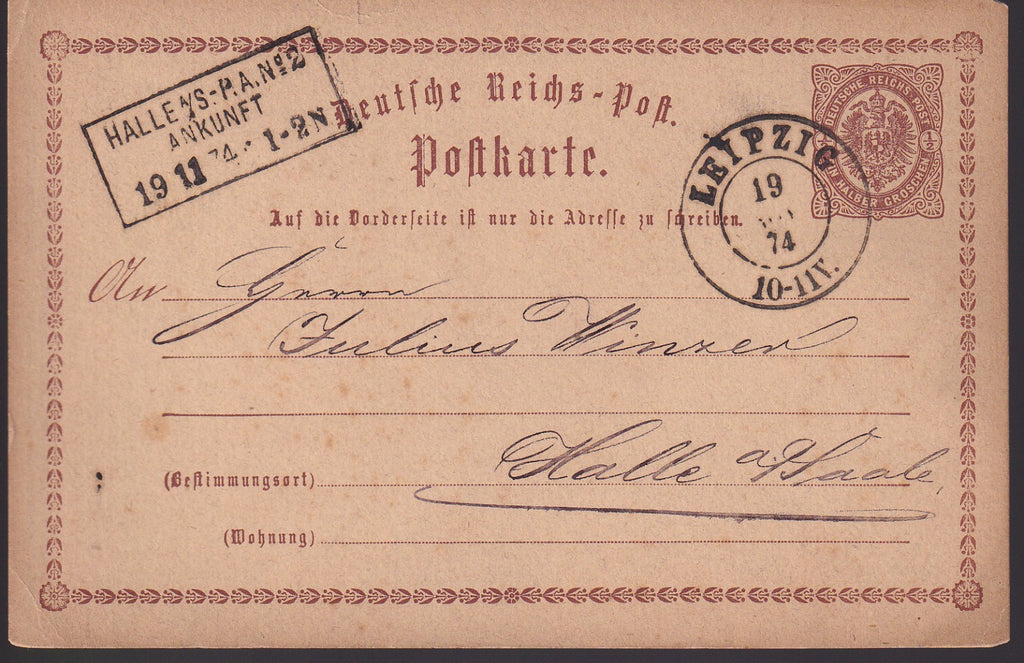 HALLE A/S.-P.A. No 2
ANKUNFT
19 11 74. 1-2N
Deutsche Reichs-Post.
Postkarte.
DEUTSCHE REICHS-POST
½
EIN HALBER GROSCHEN
LEIPZIG
19
74
10-11V.
Auf die Vorderseite ist nur die Adresse zu schreiben.
An Herrn
Julius Winzer
Halle a/Saale,
(Bestimmungsort)
(Wohnung)